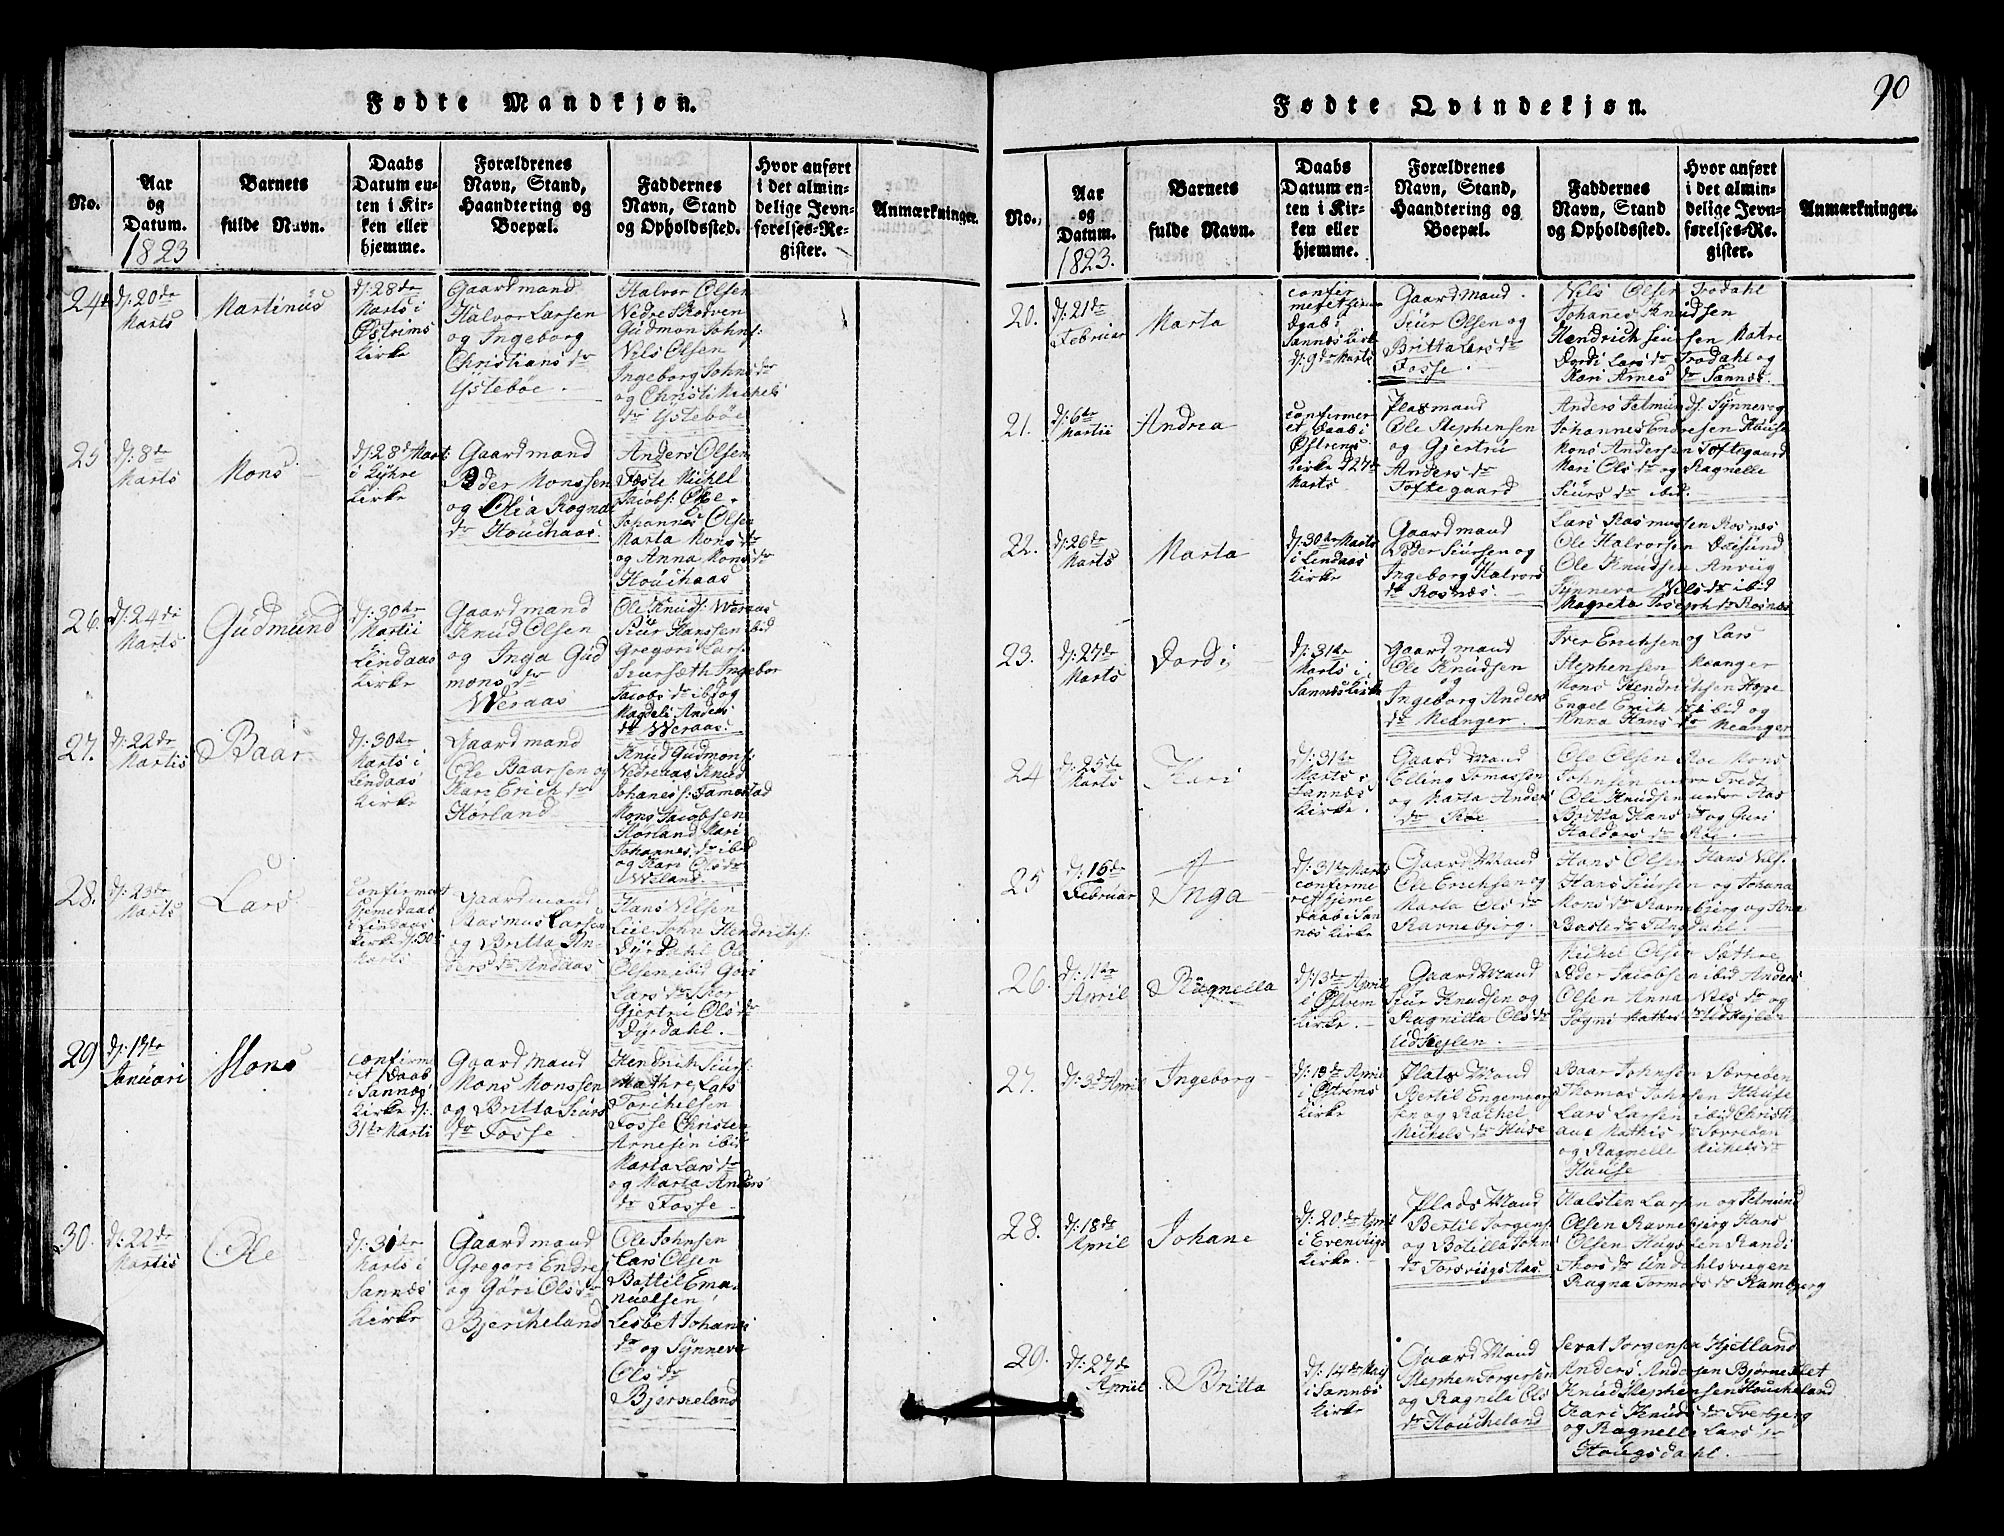 90
Fødte Mandkjøn.
No.
Aar
og
Datum.
1823
Barnets
fulde Navn.
Daabs
Datum en-
ten i Kir-
ken eller
hjemme.
Forældrenes
Navn, Stand,
Haandtering og
Boepæl.
Faddernes
Navn, Stand
og Opholdssted.
Hvor anført
i det almin-
delige Jevn-
førelses-Re-
gister.
Anmærkninger.
24
d: 20de
Marts
Martinus
d: 28de
Marts i
Østrims
Kirke
Gaardmand
Halvor Larsen
og Ingeborg
Christians dr
Ystebøe.
Halvor Olsen
Nedre Kodven
Gudmon Johns:
Nils Olsen
Ingeborg Johns dr
og Christi Mikkels
dr Ystebøe
25
d: 8de
Marts
Mons
d: 28d Mart
i Lyhre
Kirke
Gaardmand
Peder Monssen
og Olia Rogna
dr Houchaas.
Anders Olsen
Foste Michel
Jacobs: Oxe.
Johannes Olsen
Marta Mons dr
og Anna Mons dr
Houchaas
26.
d: 24de
Marts
Gudmund
d: 30te
Martii
Lindaas
Kirke
Gaardmand
Knud Olsen
og Inga Gud
mons dr
Weraas
Ole Knuds: Weraas
Siur Hanssen ibid
Gregori Lars:
Siursæth Ingebor
Jacobs dr ibid og
Magdeli Anders
dr Weraas.
27.
d: 22de
Martis
Baar
d: 30te
Marts i
Lindaas
Kirke
Gaardmand
Ole Baarsen og
Kari Erich dr
Hørland
Knud Gudmons:
Nedreaas Knud
Johaness: Tamestad
Mons Jacobsen
Hørland Mari
Johannes dr ibid
og Kari Ols dr
Weland.
28.
d: 23de
Marts
Lars
Confirmert
hjemedaab
i Lindaas
Kirke d: 30
Marts
Gaardmand
Rasmus Larsen
og Britta An-
ders dr Andaas
Hans Nilsen
Lie John Hendrichs:
Dyrdahl Ole
Olsen ibid Gori
Lars dr Skor
Gjertri Ols dr
Dyrdahl.
29
d: 13de
Januari
Mons
confirme
ret Daab
i Sannes
Kirke d:
31te Marti
Gaardmand
Mons Monssen
og Britta Siurs
dr Fosse.
Hendrich Siurs:
Mathre Lars
Torchelsen
Fosse Christen
Arnesen ibid
Marta Lars dr
og Marta Anders
dr Fosse.
30.
d: 22de
Martis
Ole
d: 31te
Marts i
Sannes
Kirke
Gaardmand
Gregori Endres
og Gøri Ols dr
Bjercheland
Ole Johnsen
Lars Olsen
Battil Ema-
nuelsen
Lesbet Johanes
dr og Synneve
Ols dr
Bjerkeland
Fødte Qvindekjøn.
No.
Aar
og
Datum.
1823.
Barnets
fulde Navn.
Daabs
Datum en-
ten i Kir-
ken eller
hjemme.
Forældrenes
Navn, Stand,
Haandtering og
Boepæl.
Faddernes
Navn, Stand
og Opholdssted.
Hvor anført
i det almin-
delige Jevn-
førelses-Re-
gister.
Anmærkninger.
20.
d: 21de
Februar
Marta
confer
meret hjeme
Daab i
Sannes Kirke
d: 9de Marts
Gaard Mand.
Siur Olsen og
Britta Lars dr
Fosse.
Nils Olsen Trodahl
Johanes Knudsen
Hendrich Siursen Matre
Dordi Lars dr Trodahl og
Kari Arnes dr Sannes.
21.
d: 6te
Martii
Andrea
confermer
et Daab i
Østrems
Kirke d 27de
Marts
Plasmand
Ole Stephensen
og Gjertrú
Anders dr
Toftegaard
Anders Aslmun ds: Synnevog
Johannes Endresen Kause
Mons Andersen Toftegaard
Mari Ols dr og Ragnelle
Siurs dr ibid.
22.
d: 26de
Marts
Marta
d: 30te Marts
i Lindaas
Kirke
Gaardmand
Peder Siursen og
Ingeborg Halvors
dr Rosnæs
Lars Rasmussen Rosnæs
Ole Halvorsen Dxesund
Ole Knudsen Anvug
Synneva Nils dr ibid
Magreta Joseph dr Rosnæs
23.
d: 27de
Marts
Dordi
d: 31te
Marts i
Sannes Kirke
Gaardmand
Ole Knudsen
og
Ingeborg Anders
dr Meanger.
Iver Erichsen og Lars
Stephensen Meanger
Mons Hendrichsen Hope
Engel Erich dr ibid og
Anna Hans dr Meanger
24
d: 25de
Marts
Kari
d: 31te
Marts i
Sannes
Kirke.
Gaard Mand
Elling Tomassen
og Marta Anders
dr Røe
Ole Olsen Røe Mons
Johnsen nedre Tredt
Ole Knudsen nedre Aas
Britta Hans dr og Guri
Haldors dr Røe.
25
d: 16de
Februar
Inga
d: 31te Marts
conferme
ret hjeme
daab i San
nes Kirke
Gaard Mand
Ole Erichsen og
Marta Ols dr
Ravnebjerg.
Hans Olsen Hans Nils:
Hans Siursen og Johana
Mons dr Ravnebjerg og Ana
Baste dr Tangdahl.
26.
d: 11te
April
Ragnella
d: 13de April
i Østrem
Kirke.
Gaard Mand
Siur Knudsen og
Ragnilla Ols dr
Udkejlen
Michel Olsen Sæthre
Peder Jacobsen ibid Anders
Olsen Anna Nils dr og
Søgni Mathis dr Udkejlen
27.
d: 3d April
Ingeborg
d: 13de April
i Østrems
Kirke
Plats Mand
Bertil Engemoor
sen og Rachel
Michels dr Huse
Baar Johnsen Sørreben
Thomas Johnsen Hause
Lars Larsen ibid Christi
ane Mathis dr Sørreben
og Ragnelle Michels dr
Hause
28.
d: 18de
April
Johane
d: 20de April
i Evenvigs
Kirke.
Plads Mand
Bertil Torgens:
og Botilla Johns
dr Torsvigs Aas
Halsten Larsen og Aslmund
Olsen Ravnebjerg Hans
Olsen Hugsøen Randi
Thors dr Undahlsvugen
Ragna Tormods dr Rambjerg
29.
d: 27de
April
Britta
d: 14de May
i Sannes
Kirke
Gaard Mand
Stephen Torgersen
og Ragnila Ols
dr Houcheland
Serat Torgensen Hjetland
Anders Andersen Bjørneslet
Knud Stephensen Houcheland
Kari Knuds dr Tverberg
og Ragnelle Lars dr
Hougsdahl.